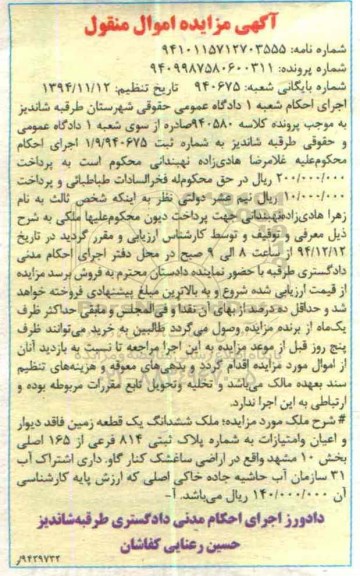 آگهی مزایده اموال منقول
شماره نامه: ۹۴۱۰۱۱۵۷۱۲۷۰۳۵۵۵
شماره پرونده: ۹۴۰۹۹۸۷۵۸۰۶۰۰۳۱۱
شماره بایگانی شعبه: ۹۴۰۶۷۵ تاریخ تنظیم: ۱۳۹۴/۱۱/۱۲
اجرای احکام شعبه ۱ دادگاه عمومی حقوقی شهرستان طرقبه شاندیز
به موجب پرونده کلاسه ۹۴۰۵۸۰صادره از سوی شعبه ۱ دادگاه عمومی
و حقوقی طرقبه شاندیز به شماره ثبت ۱/۹/۹۴۰۶۷۵ اجرای احکام
محکوم‌علیه غلامرضا هادی‌زاده نهبندانی محکوم است به پرداخت
۲۰۰/۰۰۰/۰۰۰ ریال در حق محکوم‌له فخرالسادات طباطبائی و پرداخت
۱۰/۰۰۰/۰۰۰ ریال نیم عشر دولتی نظر به اینکه شخص ثالث به نام
زهرا هادی‌زاده‌نهبندانی جهت پرداخت دیون محکوم‌علیها ملکی به شرح
ذیل معرفی و توقیف و توسط کارشناس ارزیابی و مقرر گردید در تاریخ
۹۴/۱۲/۱۲ از ساعت ۸ الی ۹ صبح در محل دفتر اجرای احکام مدنی
دادگستری طرقبه با حضور نماینده دادستان محترم به فروش برسد مزایده
از قیمت ارزیابی شده شروع و به بالاترین مبلغ پیشنهادی فروخته خواهد
شد و حداقل ده درصد از بهای آن نقدا و فی‌المجلس و مابقی حداکثر ظرف
یک‌ماه از برنده مزایده وصول می‌گردد طالبین به خرید می‌توانند ظرف
پنج روز قبل از موعد مزایده به این اجرا مراجعه تا نسبت به بازدید آنان
از اموال مورد مزایده اقدام گردد و بدهی‌های معوقه و هزینه‌های تنظیم
سند بعهده مالک می‌باشد و تخلیه وتحویل تابع مقررات مربوطه بوده و
ارتباطی به این اجرا ندارد.
# شرح ملک مورد مزایده؛ ملک ششدانگ یک قطعه زمین فاقد دیوار
و اعیان وامتیازات به شماره پلاک ثبتی ۸۱۴ فرعی از ۱۶۵ اصلی
بخش ۱۰ مشهد واقع در اراضی ساغشک کنار گاو. داری اشتراک آب
۳۱ سازمان آب حاشیه جاده خاکی اصلی که ارزش پایه کارشناسی
آن ۱۴۰/۰۰۰/۰۰۰ ریال می‌باشد. آ-
دادورز اجرای احکام مدنی دادگستری طرقبه‌شاندیز
حسین رعنایی کفاشان
۹۴۲۹۷۳۲/ر